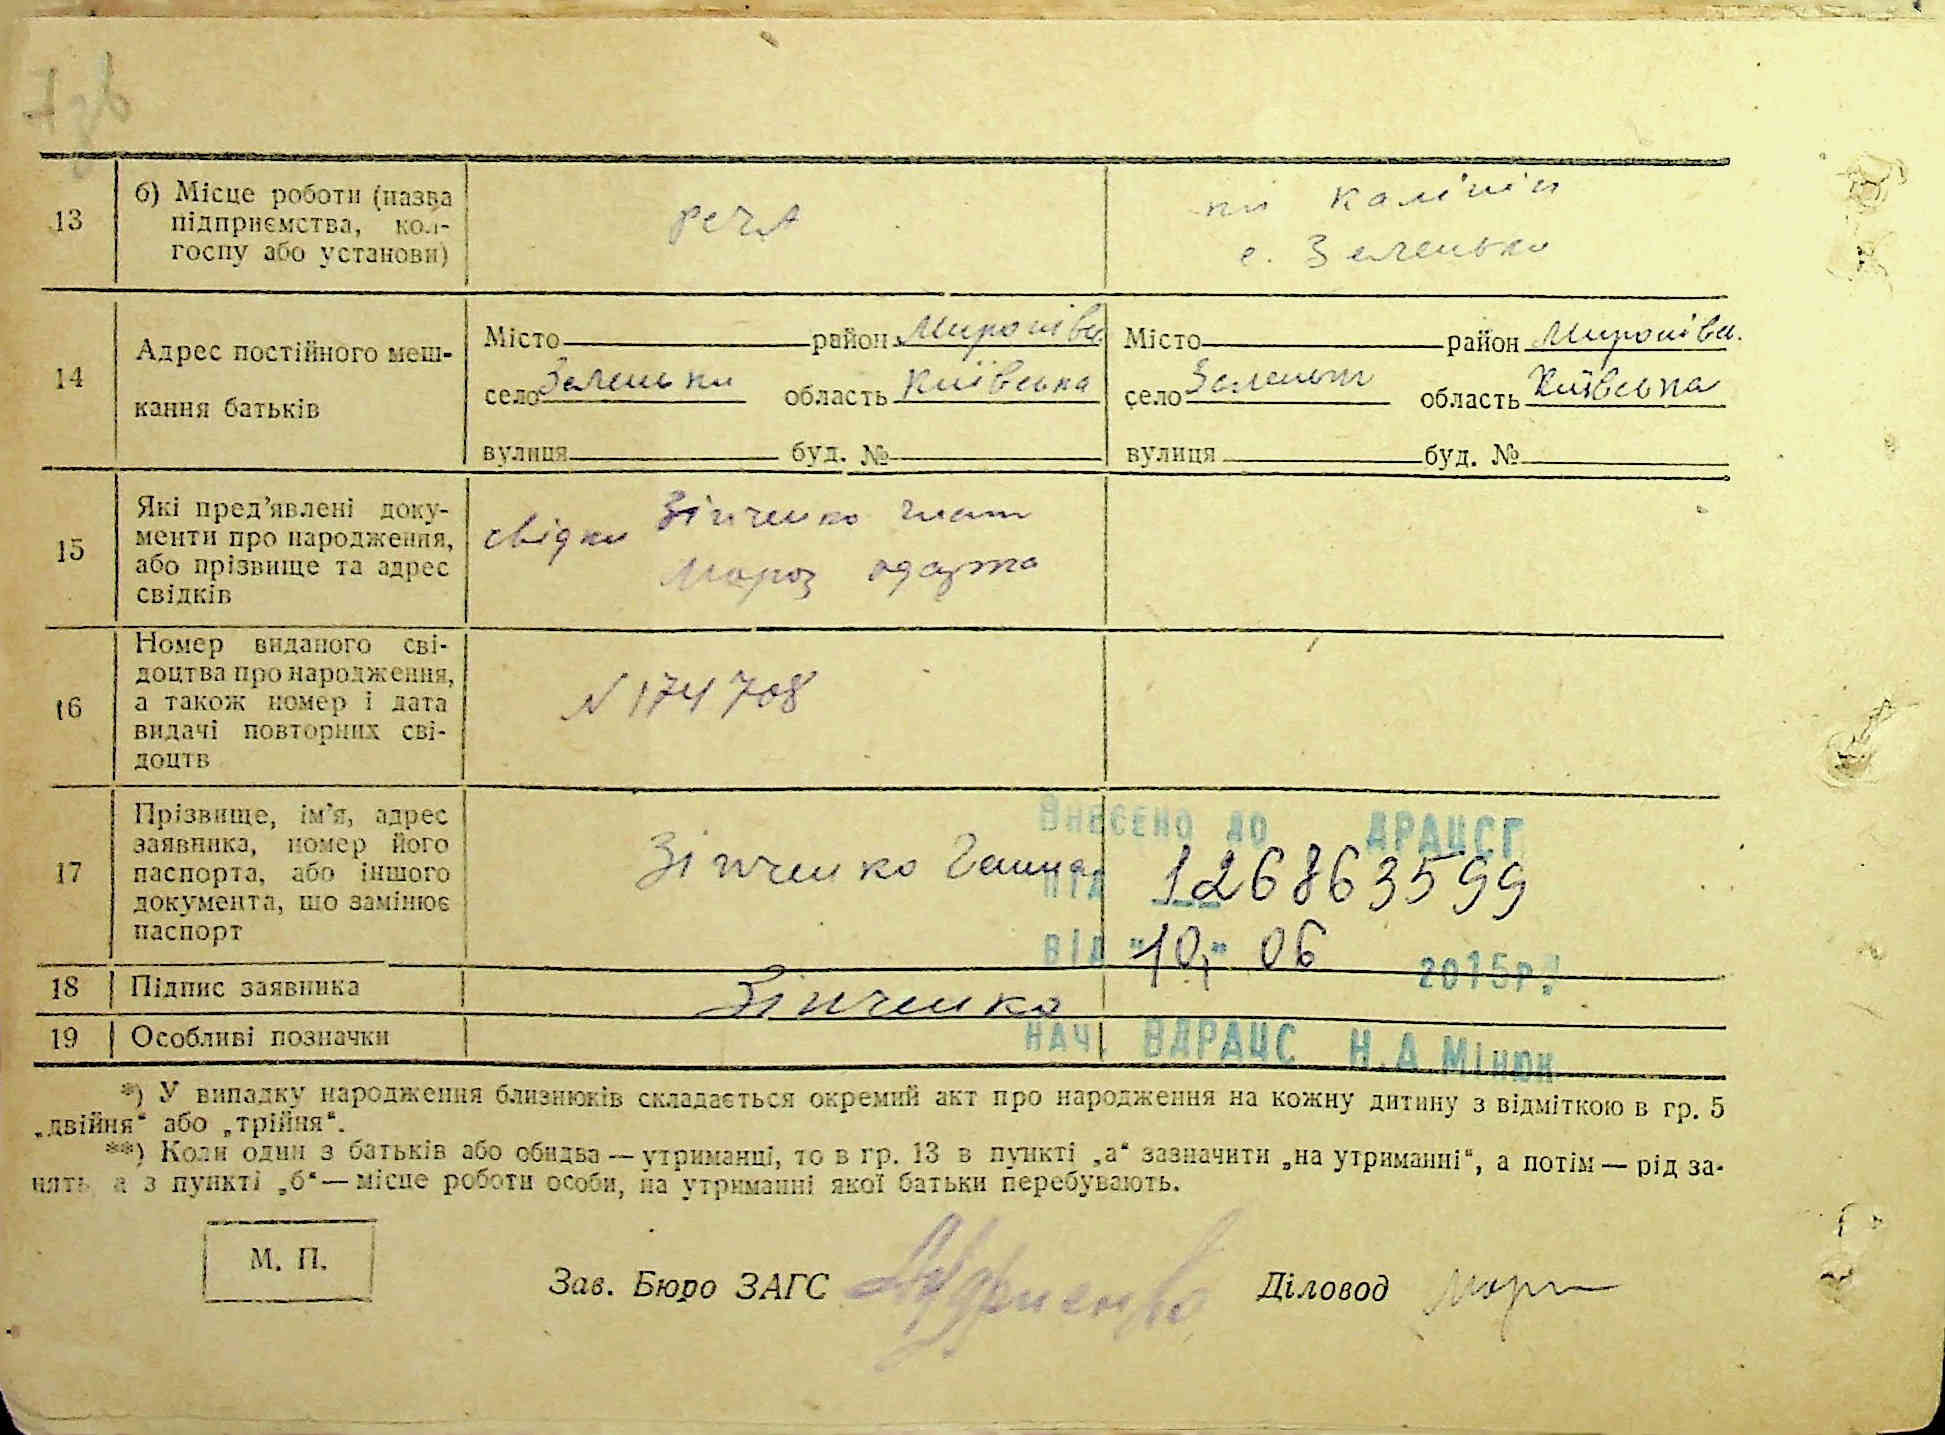 13 б) Місце роботи (назва
підприємства, кол-
госпу або установи)
РСЧА
ім Калінін
с. Зеленько
14 Адрес постійного меш-
кання батьків
Місто район Миронівс.
село Зеленьки область Київська
вулиця буд. №
Місто район Миронівс.
село Зеленьки область Київська
вулиця буд. №
15 Які пред'явлені доку-
менти про народження,
або прізвище та адрес
свідків
свідки Зінченко
Мороз Одарка
16 Номер виданого сві-
доцтва про народження,
а також номер і дата
видачі повторних сві-
доцтв
N 174708
17 Прізвище, ім'я, адрес
заявника, номер його
паспорта, або іншого
документа, що замінює
паспорт
Зінченко Ганна
Внесено до ДРАЦСГ
126863599
від "10" 06 2015р.
18 Підпис заявника
Зінченко
19 Особливі позначки
НАЧ. ВДРАЦС Н.А Мінюк
*) У випадку народження близнюків складається окремий акт про народження на кожну дитину з відміткою в гр. 5
„двійня“ або „трійня“.
**) Коли один з батьків або обидва — утриманці, то в гр. 13 в пункті „а“ зазначити „на утриманні“, а потім — рід за-
нять а з пункті „б“ — місце роботи особи, на утриманні якої батьки перебувають.
М. П.
Зав. Бюро ЗАГС
Діловод